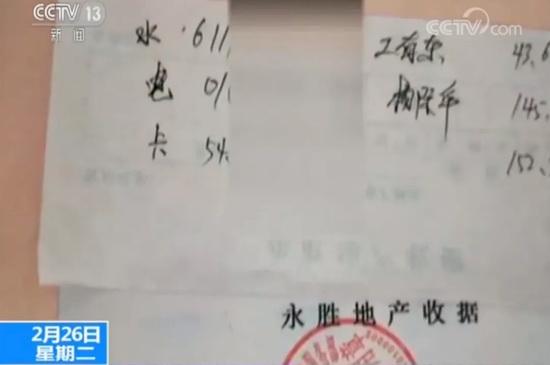 CCTV 13
新闻
CCTV.com
水·611
工育东 43.6
电 01
145.
卡 54
152.
永胜地产收据
2月26日
星期二